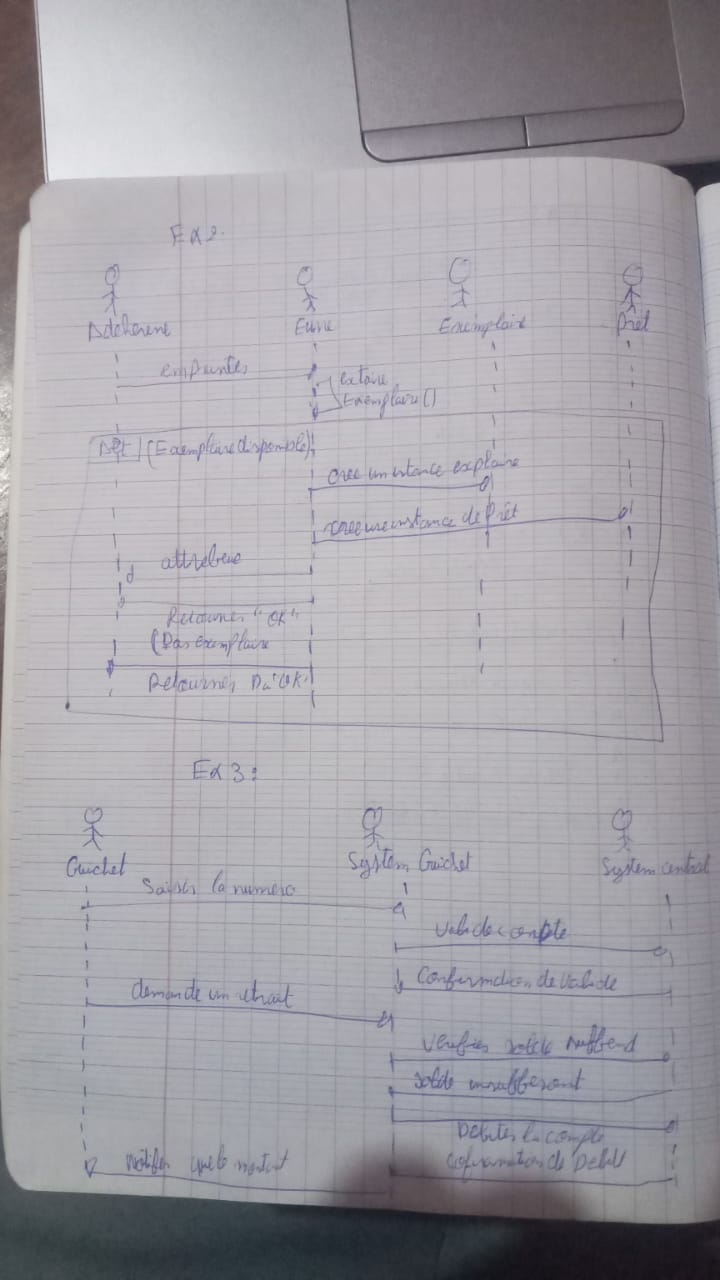 Ex 2.
Adeherene Euvre Exemplaire Prêt
emprunter
extaire
Exemplaire ()
Alt (Exemplaire disponible)
cree un instance explaire
cree une instance de Prêt
attribue
Retourner "OK"
(Pas exemplaire
Retourner Pa "OK"
Ex 3 :
Guichet System Guichet System central
Saisir la numero
Valide compte
Confirmation de valide
demande un retrait
Verifier solde suffend
solde insuffisant
Debiter la compte
Notifier que le montant cofirmation de Debit